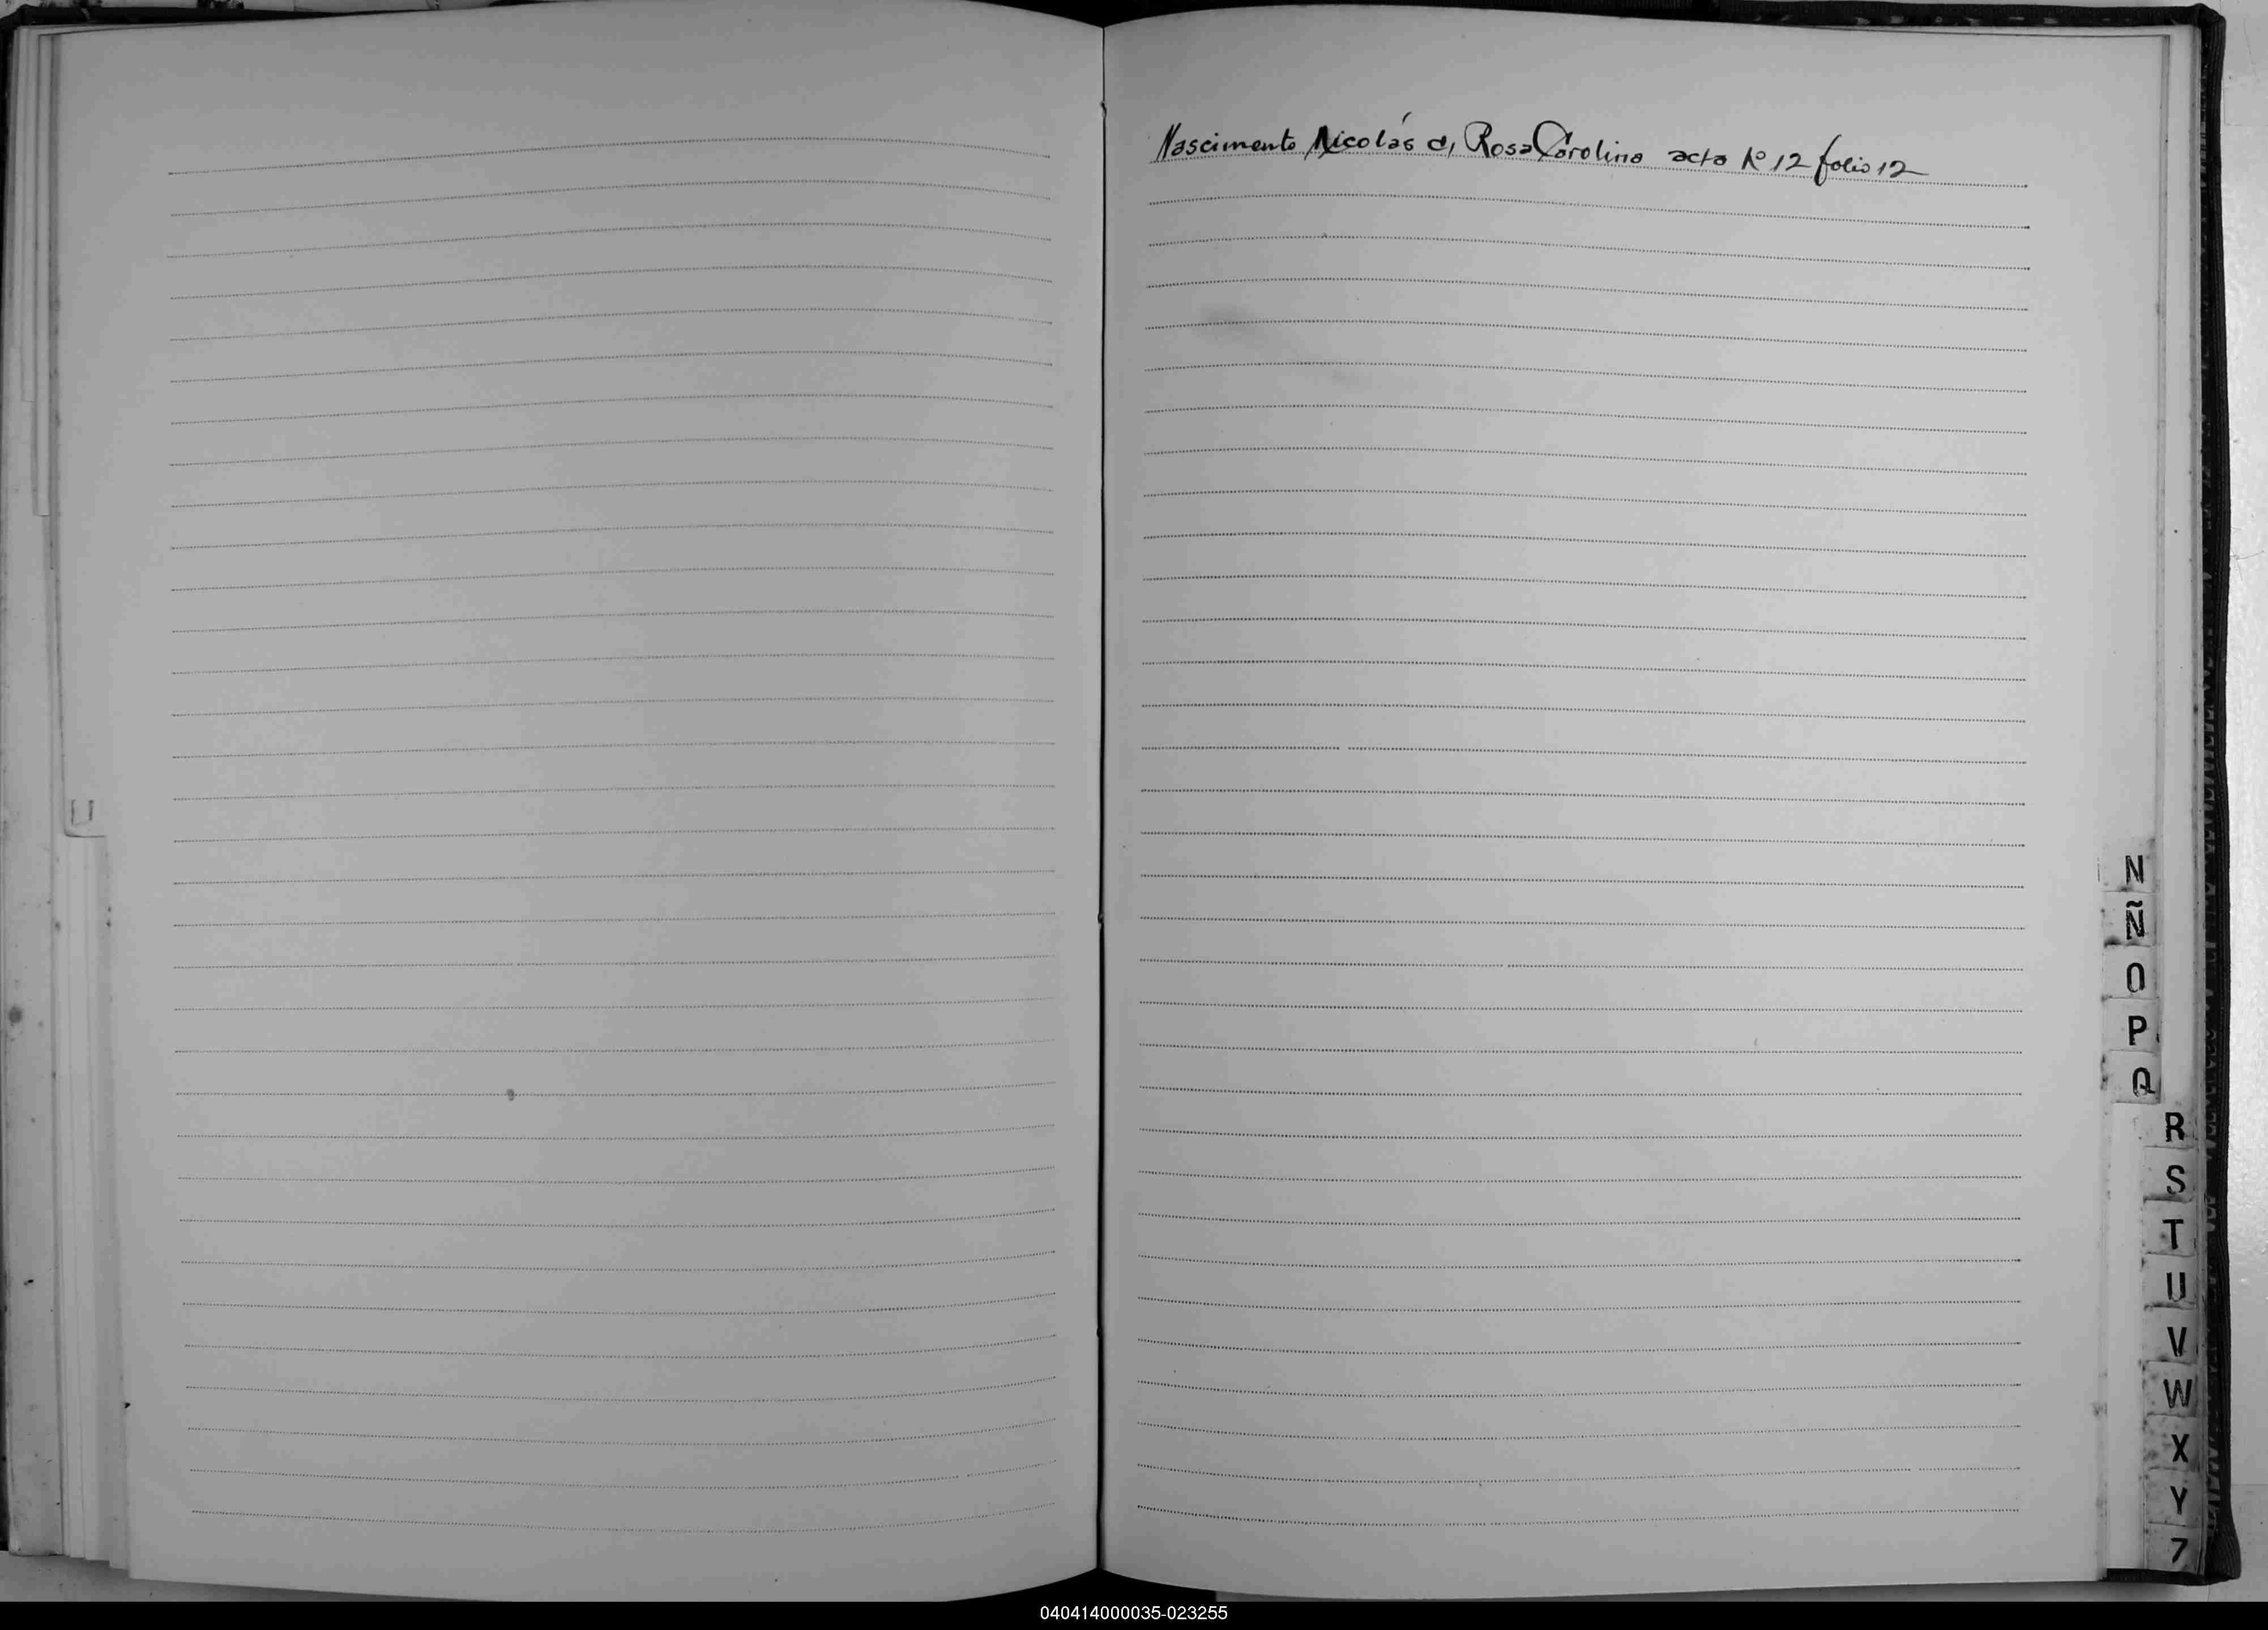 Nascimento Nicolás c/ Rosa Carolina acta Nº 12 folio 12
N
Ñ
O
P
Q
R
S
T
U
V
W
X
Y
040414000035-023255